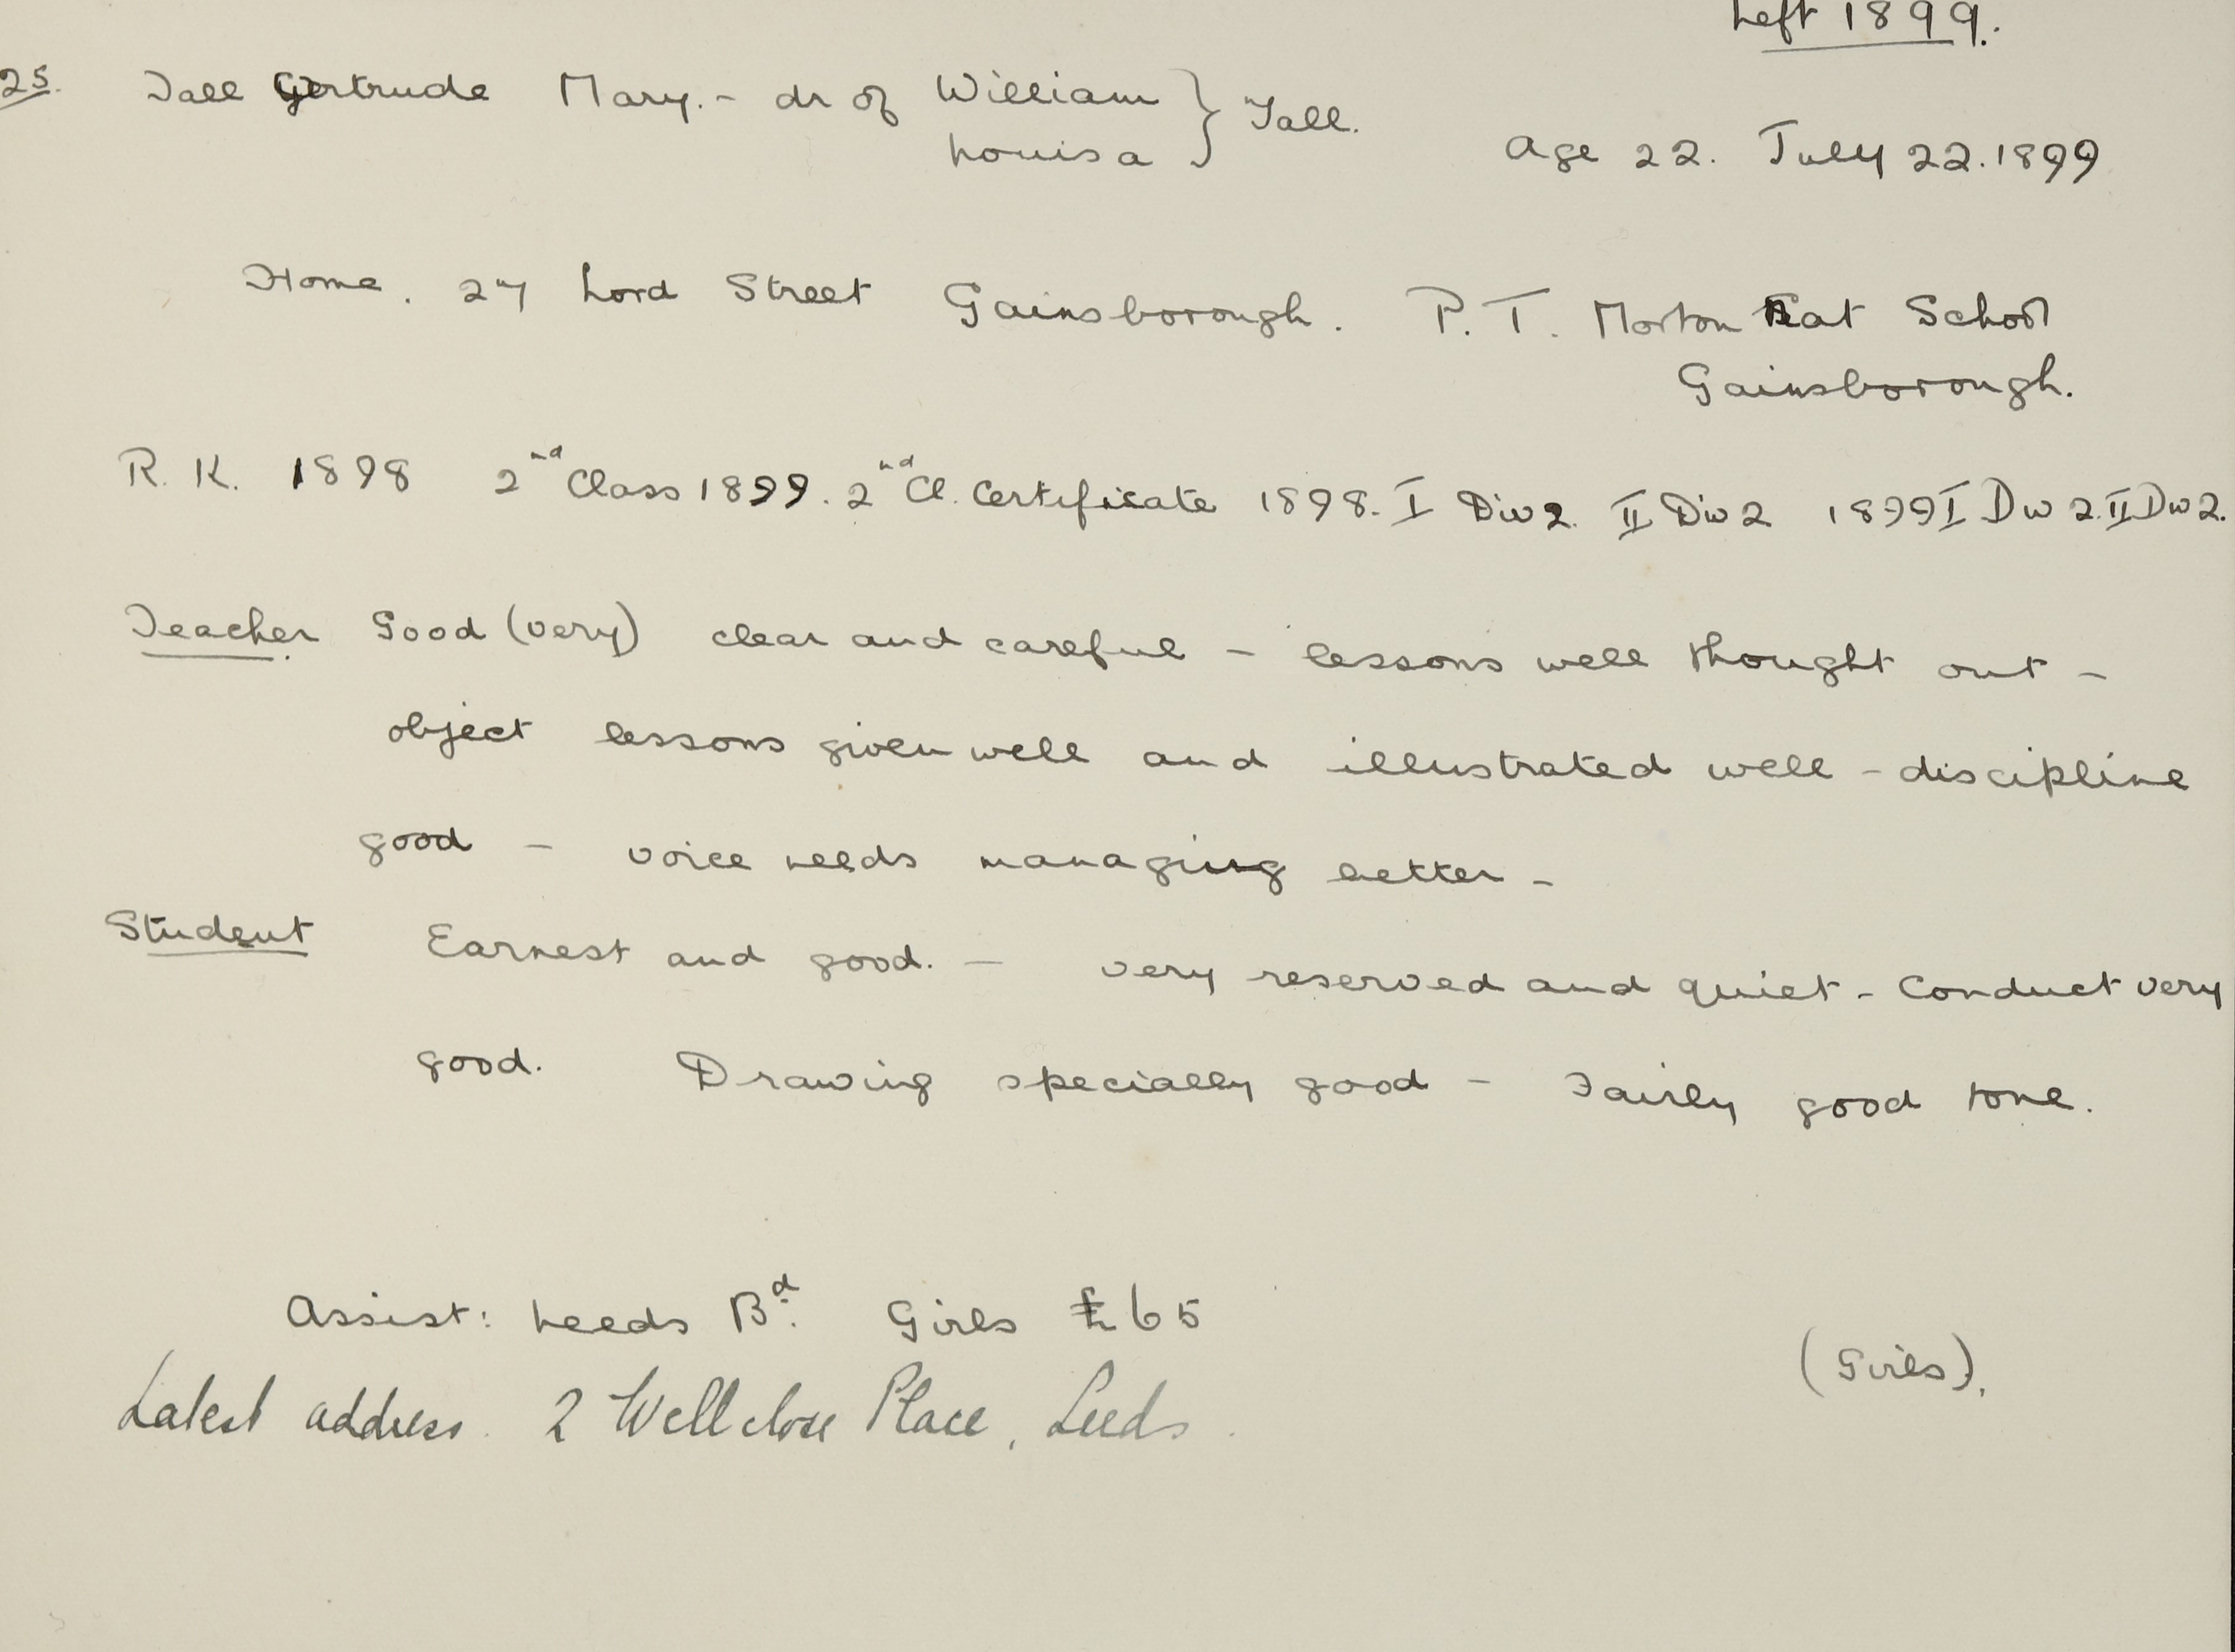 Left 1899.
25. Tall Gertrude Mary. - dr of William } Tall.
Louisa
Age 22. July 22. 1899
Home. 27 Lord Street Gainsborough. P. T. Morton Nat School
Gainsborough.
R. K. 1898 2nd Class 1899. 2nd Cl. Certificate 1898. I Div 2. II Div 2 1899 I Div 2. II Div 2.
Teacher Good (very) clear and careful - lessons well thought out -
object lessons given well and illustrated well - discipline
good - voice needs managing better -
Student Earnest and good. - very reserved and quiet - Conduct very
good. Drawing specially good - Fairly good tone.
Assist: Leeds Bd. Girls £65
(Girls).
Latest address. 2 Wellclose Place, Leeds.